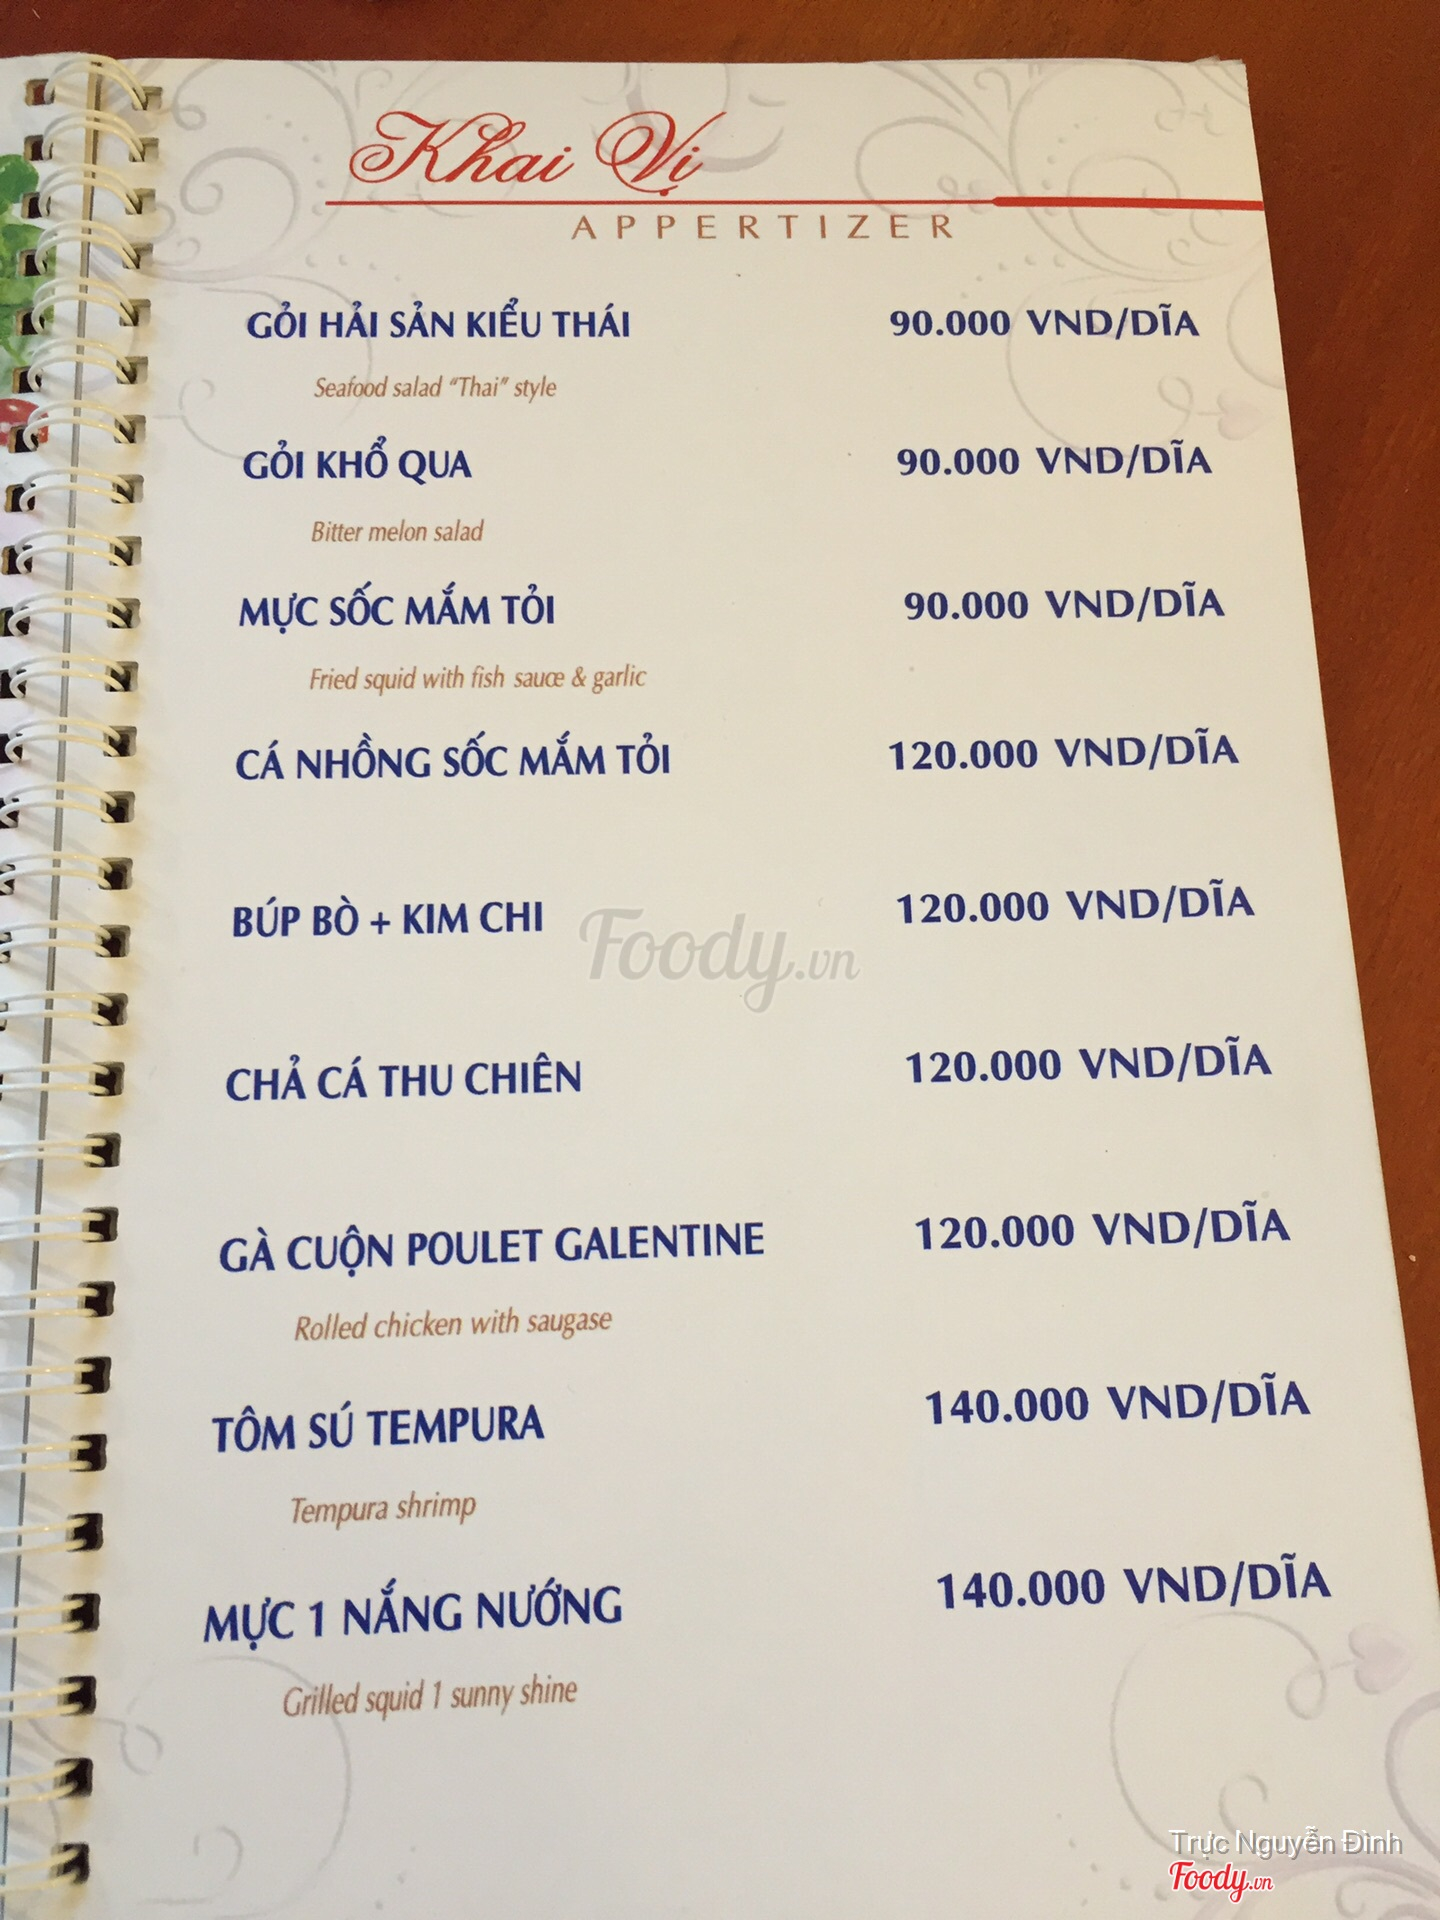 Khai Vị
APPERTIZER
GỎI HẢI SẢN KIỂU THÁI 90.000 VND/DĨA
Seafood salad “Thai” style
GỎI KHỔ QUA 90.000 VND/DĨA
Bitter melon salad
MỰC SỐC MẮM TỎI 90.000 VND/DĨA
Fried squid with fish sauce & garlic
CÁ NHỒNG SỐC MẮM TỎI 120.000 VND/DĨA
BÚP BÒ + KIM CHI 120.000 VND/DĨA
Foody.vn
CHẢ CÁ THU CHIÊN 120.000 VND/DĨA
GÀ CUỘN POULET GALENTINE 120.000 VND/DĨA
Rolled chicken with saugase
TÔM SÚ TEMPURA 140.000 VND/DĨA
Tempura shrimp
MỰC 1 NẮNG NƯỚNG 140.000 VND/DĨA
Grilled squid 1 sunny shine
Trực Nguyễn Đình
Foody.vn